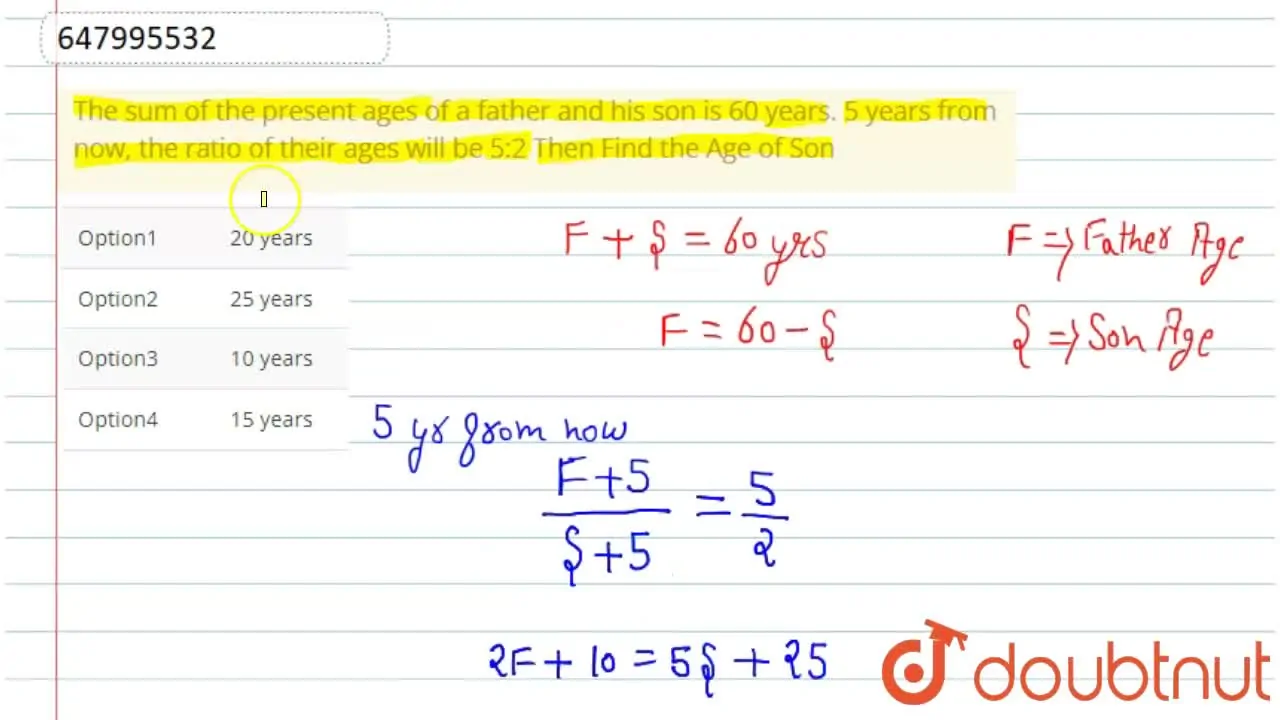 647995532
The sum of the present ages of a father and his son is 60 years. 5 years from
now, the ratio of their ages will be 5:2 Then Find the Age of Son
Option1 20 years
Option2 25 years
Option3 10 years
Option4 15 years
F + S = 60 yrs
F => Father Age
F = 60 - S
S => Son Age
5 yr from now
F+5
S+5
= 5
2
2F + 10 = 5S + 25
doubtnut